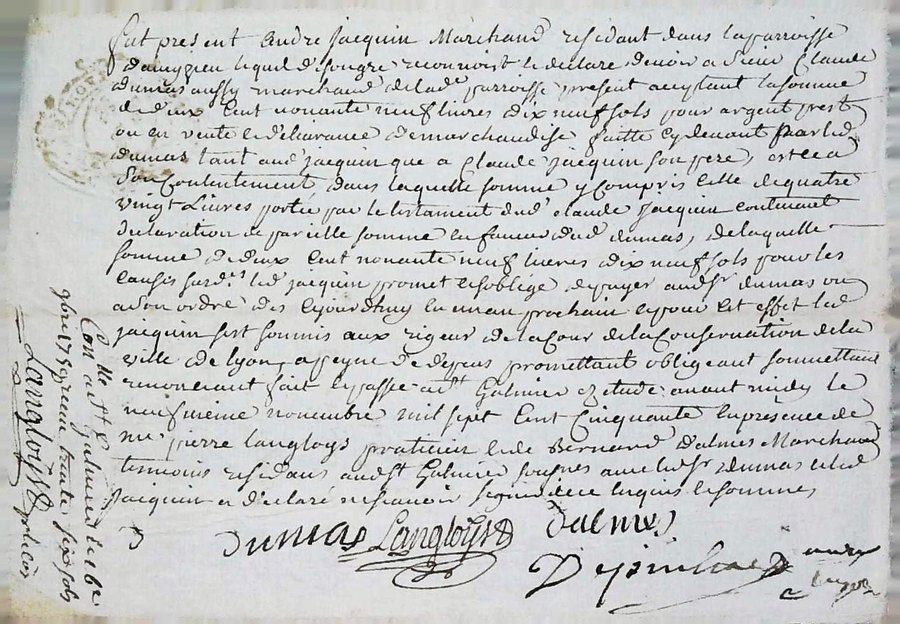 fut present André jacquin Marchand résidant dans la parroisse
d'aveyzieu lequel de son gré reconnoist et déclare devoir a Sieur Claude
dumas aussy marchand de lade parroisse present acceptant la somme
de deux cent nonante neuf livres dix neuf sols pour argent presté
ou en vente et délivrance de marchandise faitte cy devant par led
dumas tant aud jacquin que a Claude jacquin son pere, et ce a
Son Contentement, dans laquelle somme y compris celle de quatre
vingt Livres portée par le testament dud claude jacquin contenant
declaration de pareille somme en faveur dud dumas, de laquelle
Somme de deux cent nonante neuf livres dix neuf sols pour les
causes susd.s led jacquin promet et s'oblige de payer aud sr dumas ou
a son ordre des cejourdhuy en un an prochain et pour cet effet led
jacquin s'est soumis aux rigeur de la Cour de la Conservation de la
ville de Lyon, a peyne de depens promettant obligeant soumettant
renonceant fait et passé a St Galmier ez etude avant midy le
neufvième novembre mil sept cent cinquante en presence de
me pierre Langloys praticien et de Bernard Dalmes Marchand
temoins résidans aud St Galmier soussnes avec led sr dumas et led
Jacquin a declaré ne scavoir signer de ce enquis et sommé,
Dumas Langloys Dalmes
Con.lle a St Galmier le 16e
9bre 1750 receu trente six sols
Langloys